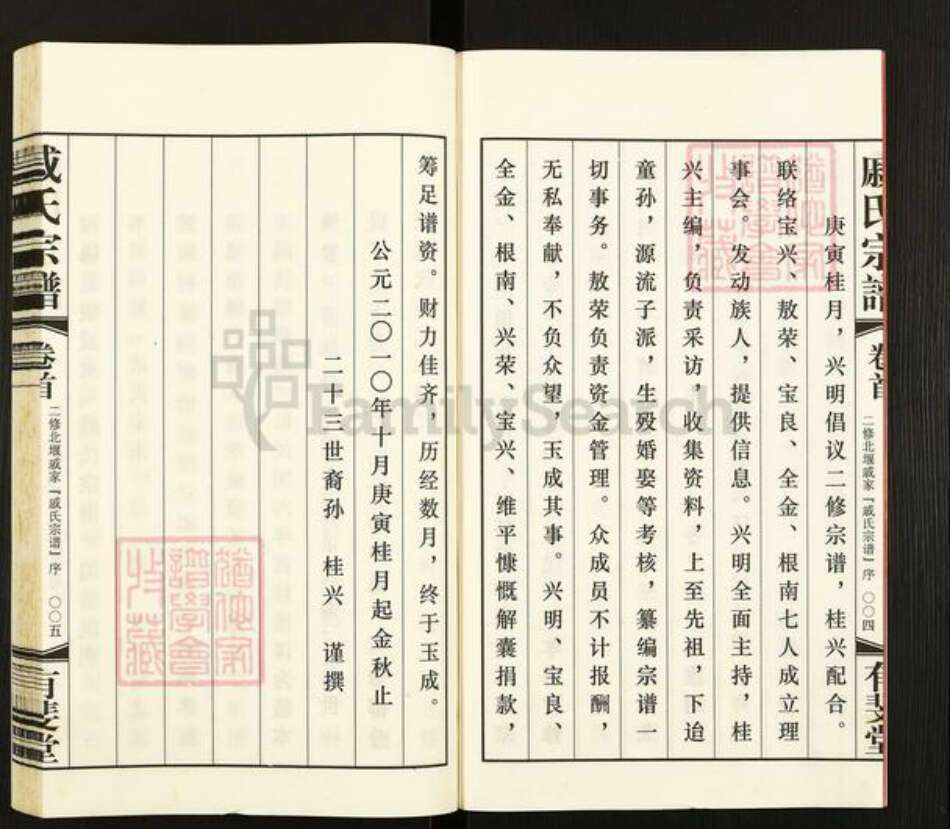 戚氏宗谱
卷首
二修北堰戚家『戚氏宗谱』序
〇〇四
有斐堂
庚寅桂月，兴明倡议二修宗谱，桂兴配合。
联络宝兴、敖荣、宝良、全金、根南七人成立理
事会。发动族人，提供信息。兴明全面主持，桂
兴主编，负责采访，收集资料，上至先祖，下迨
童孙，源流子派，生殁婚娶等考核，纂编宗谱一
切事务。敖荣负责资金管理。众成员不计报酬，
无私奉献，不负众望，玉成其事。兴明、宝良、
全金、根南、兴荣、宝兴、维平慷慨解囊捐款，
筹足谱资。财力佳齐，历经数月，终于玉成。
公元二〇一〇年十月庚寅桂月起金秋止
二十三世裔孙 桂兴 谨撰
戚氏宗谱
卷首
二修北堰戚家『戚氏宗谱』序
〇〇五
有斐堂
FamilySearch
谱学会
收藏